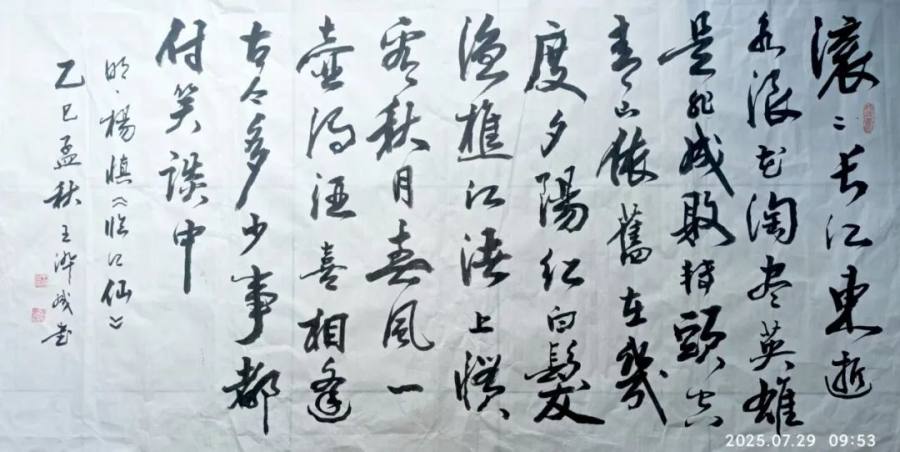 滚〻长江東逝
水浪花淘尽英雄
是非成敗转頭空
青山依舊在幾
度夕陽红白髮
渔樵江渚上惯
看秋月春風一
壶濁酒喜相逢
古今多少事都
付笑談中
明·楊慎《临江仙》
乙巳孟秋 王
2025.07.29 09:53